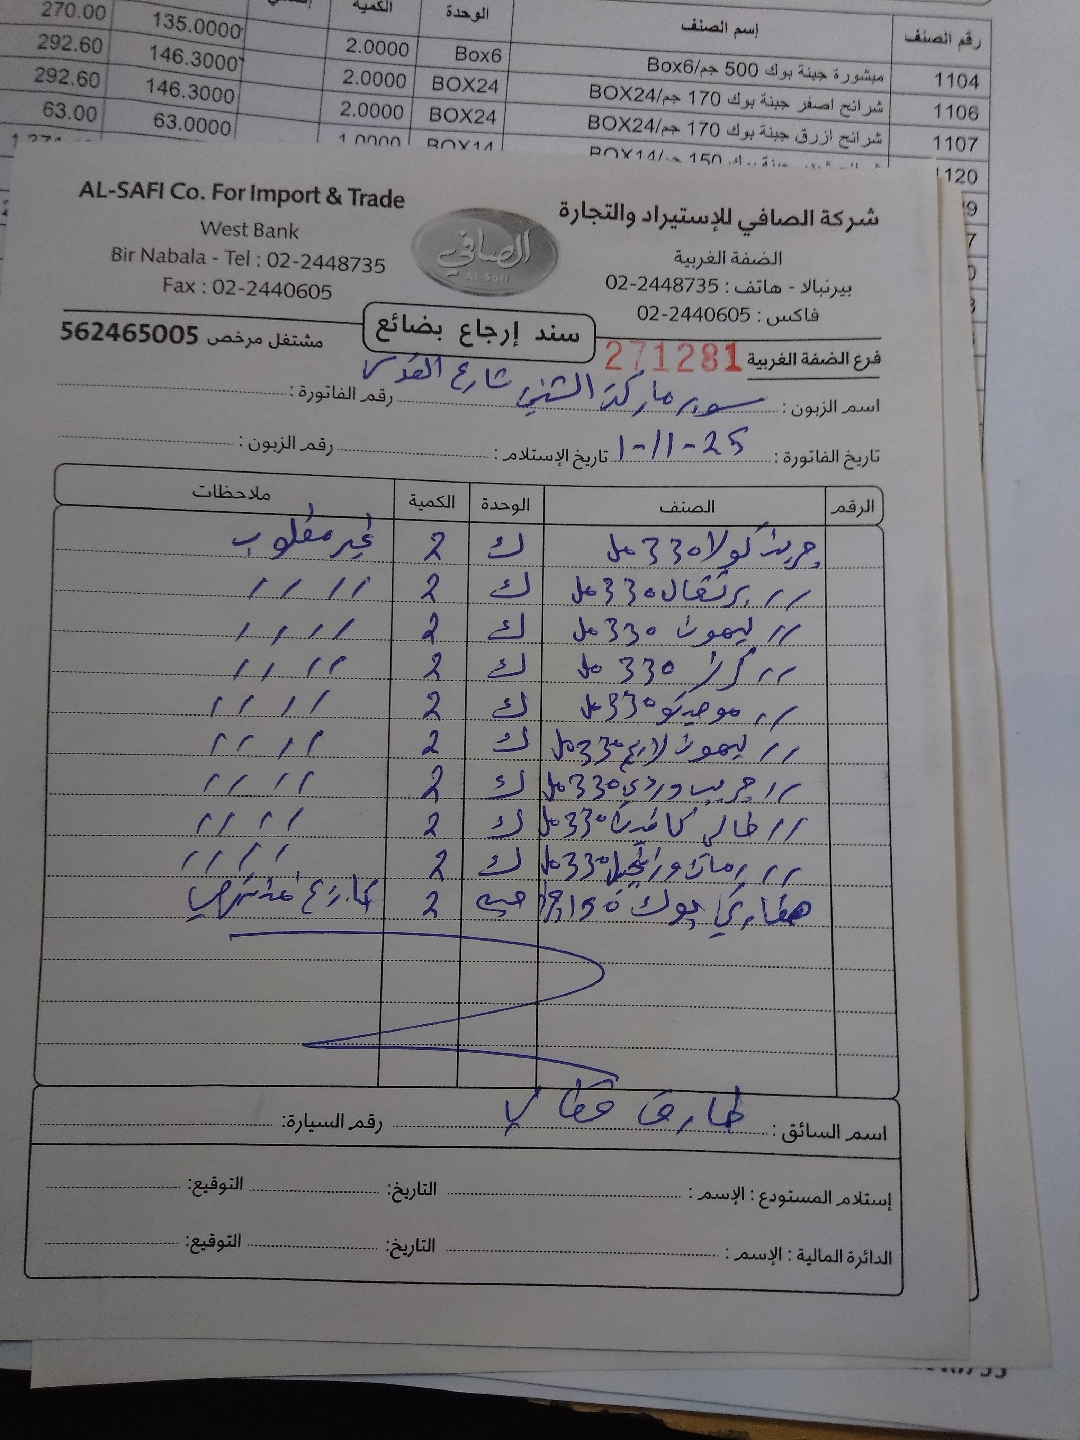 270.00 135.0000 الكمية الوحدة إسم الصنف رقم الصنف
292.60 146.3000 2.0000 Box6 مبشورة جبنة بوك 500 جم/Box6 1104
292.60 146.3000 2.0000 BOX24 شرائح اصفر جبنة بوك 170 جم/BOX24 1106
63.00 63.0000 2.0000 BOX24 شرائح ازرق جبنة بوك 170 جم/BOX24 1107
1.0000 BOX14 جبنة بوك 150 جم/BOX14 1120
AL-SAFI Co. For Import & Trade
West Bank
Bir Nabala - Tel : 02-2448735
Fax : 02-2440605
الصافي
Al Safi
شركة الصافي للإستيراد والتجارة
الضفة الغربية
بيرنبالا - هاتف : 02-2448735
فاكس : 02-2440605
مشتغل مرخص 562465005
سند إرجاع بضائع
فرع الضفة الغربية 271281
اسم الزبون : سوبر ماركت الشني شارع القدس رقم الفاتورة :
تاريخ الفاتورة : 1-11-25 تاريخ الإستلام : رقم الزبون :
الرقم الصنف الوحدة الكمية ملاحظات
جريت كولا 330 مل ك 2 غير مقلوب
// برتقال 330 مل ك 2 // //
// ليمون 330 مل ك 2 // //
// كرز 330 مل ك 2 // //
// موهيتو 330 مل ك 2 // //
// ليمون لايم 330 مل ك 2 // //
// جريب وردي 330 مل ك 2 // //
// خالي كافيين 330 مل ك 2 // //
// رمان وزنجبيل 330 مل ك 2 // //
بوك 2
اسم السائق : طارق رقم السيارة:
إستلام المستودع : الإسم : التاريخ: التوقيع:
الدائرة المالية : الإسم : التاريخ: التوقيع: